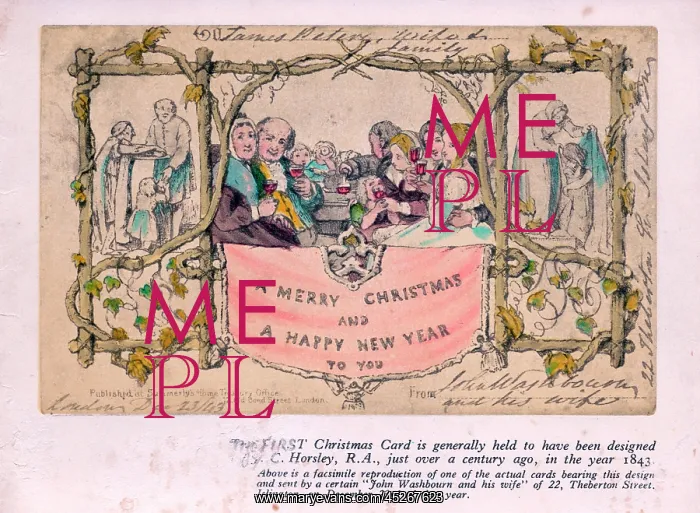 To James Peters, Wife &
Family
A MERRY CHRISTMAS
AND
A HAPPY NEW YEAR
TO YOU
Published at Summerly's Home Treasury Office,
Bond Street London.
From John Washbourn
and his wife
London Dec 23/43
22 Theberton
ME
PL
ME
PL
THE FIRST Christmas Card is generally held to have been designed
by J. C. Horsley, R.A., just over a century ago, in the year 1843.
Above is a facsimile reproduction of one of the actual cards bearing this design
and sent by a certain "John Washbourn and his wife" of 22, Theberton Street,
year.
www.maryevans.com/45267623